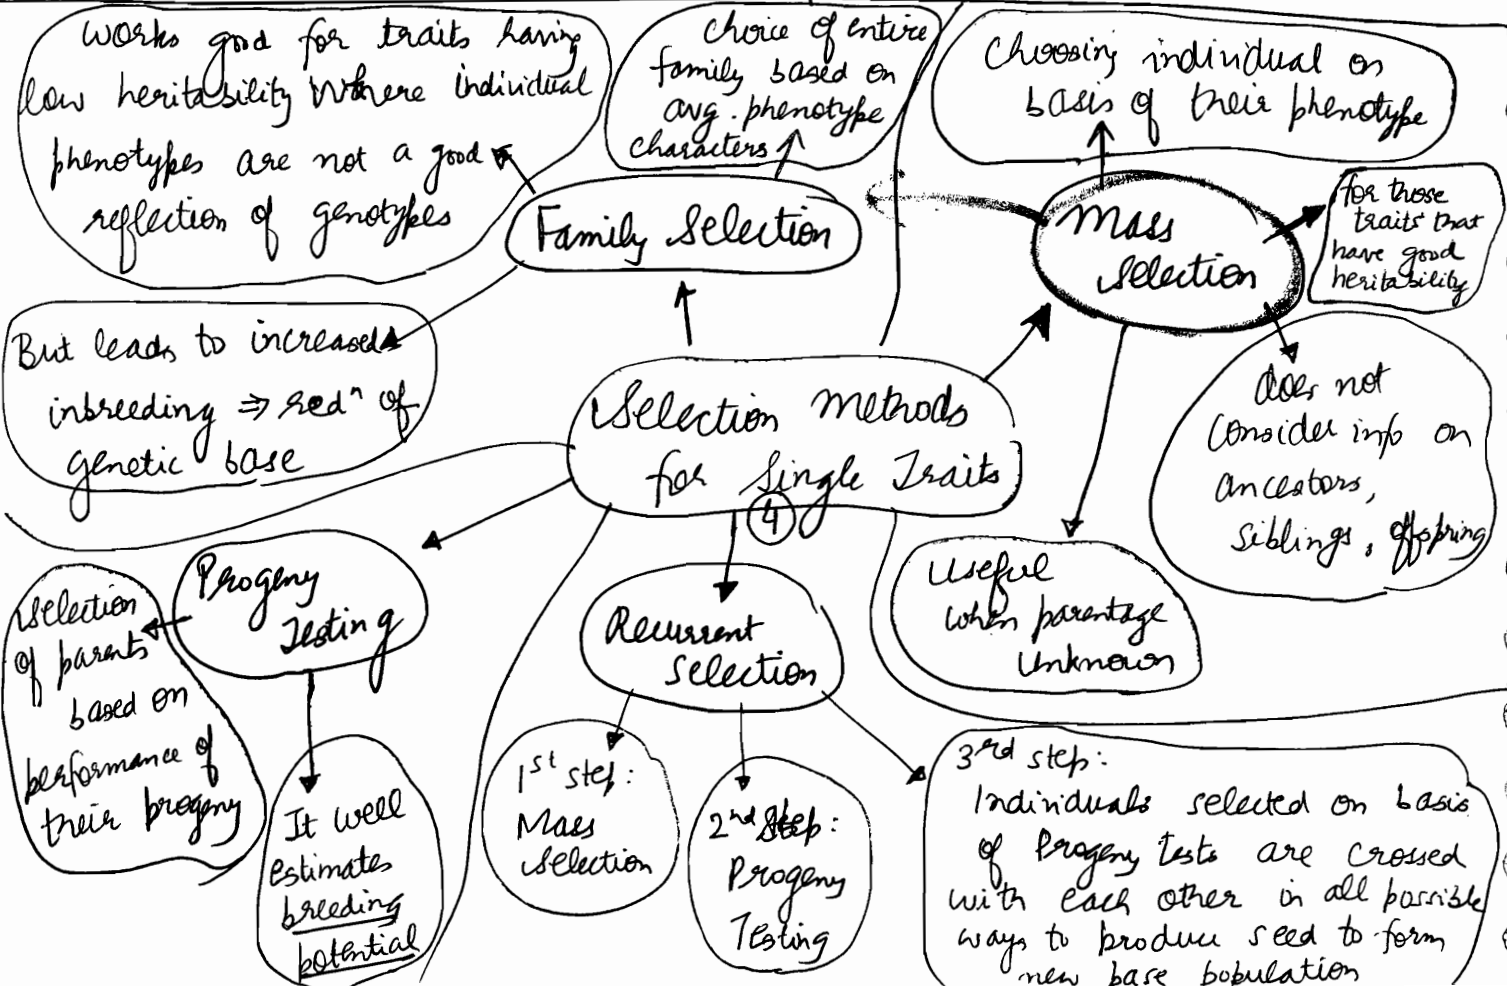 works good for traits having
low heritability where individual
phenotypes are not a good
reflection of genotypes
choice of entire
family based on
avg. phenotype
characters
Choosing individual on
basis of their phenotype
Family Selection
Mass
Selection
for those
traits that
have good
heritability
But leads to increased
inbreeding ⇒ redⁿ of
genetic base
Selection methods
for Single Traits
4
does not
consider info on
ancestors,
siblings, offspring
Useful
when parentage
unknown
Progeny
Testing
Selection
of parents
based on
performance of
their progeny
It well
estimates
breeding
potential
Recurrent
Selection
1st step:
Mass
selection
2nd step:
Progeny
Testing
3rd step:
Individuals selected on basis
of Progeny tests are crossed
with each other in all possible
ways to produce seed to form
new base population